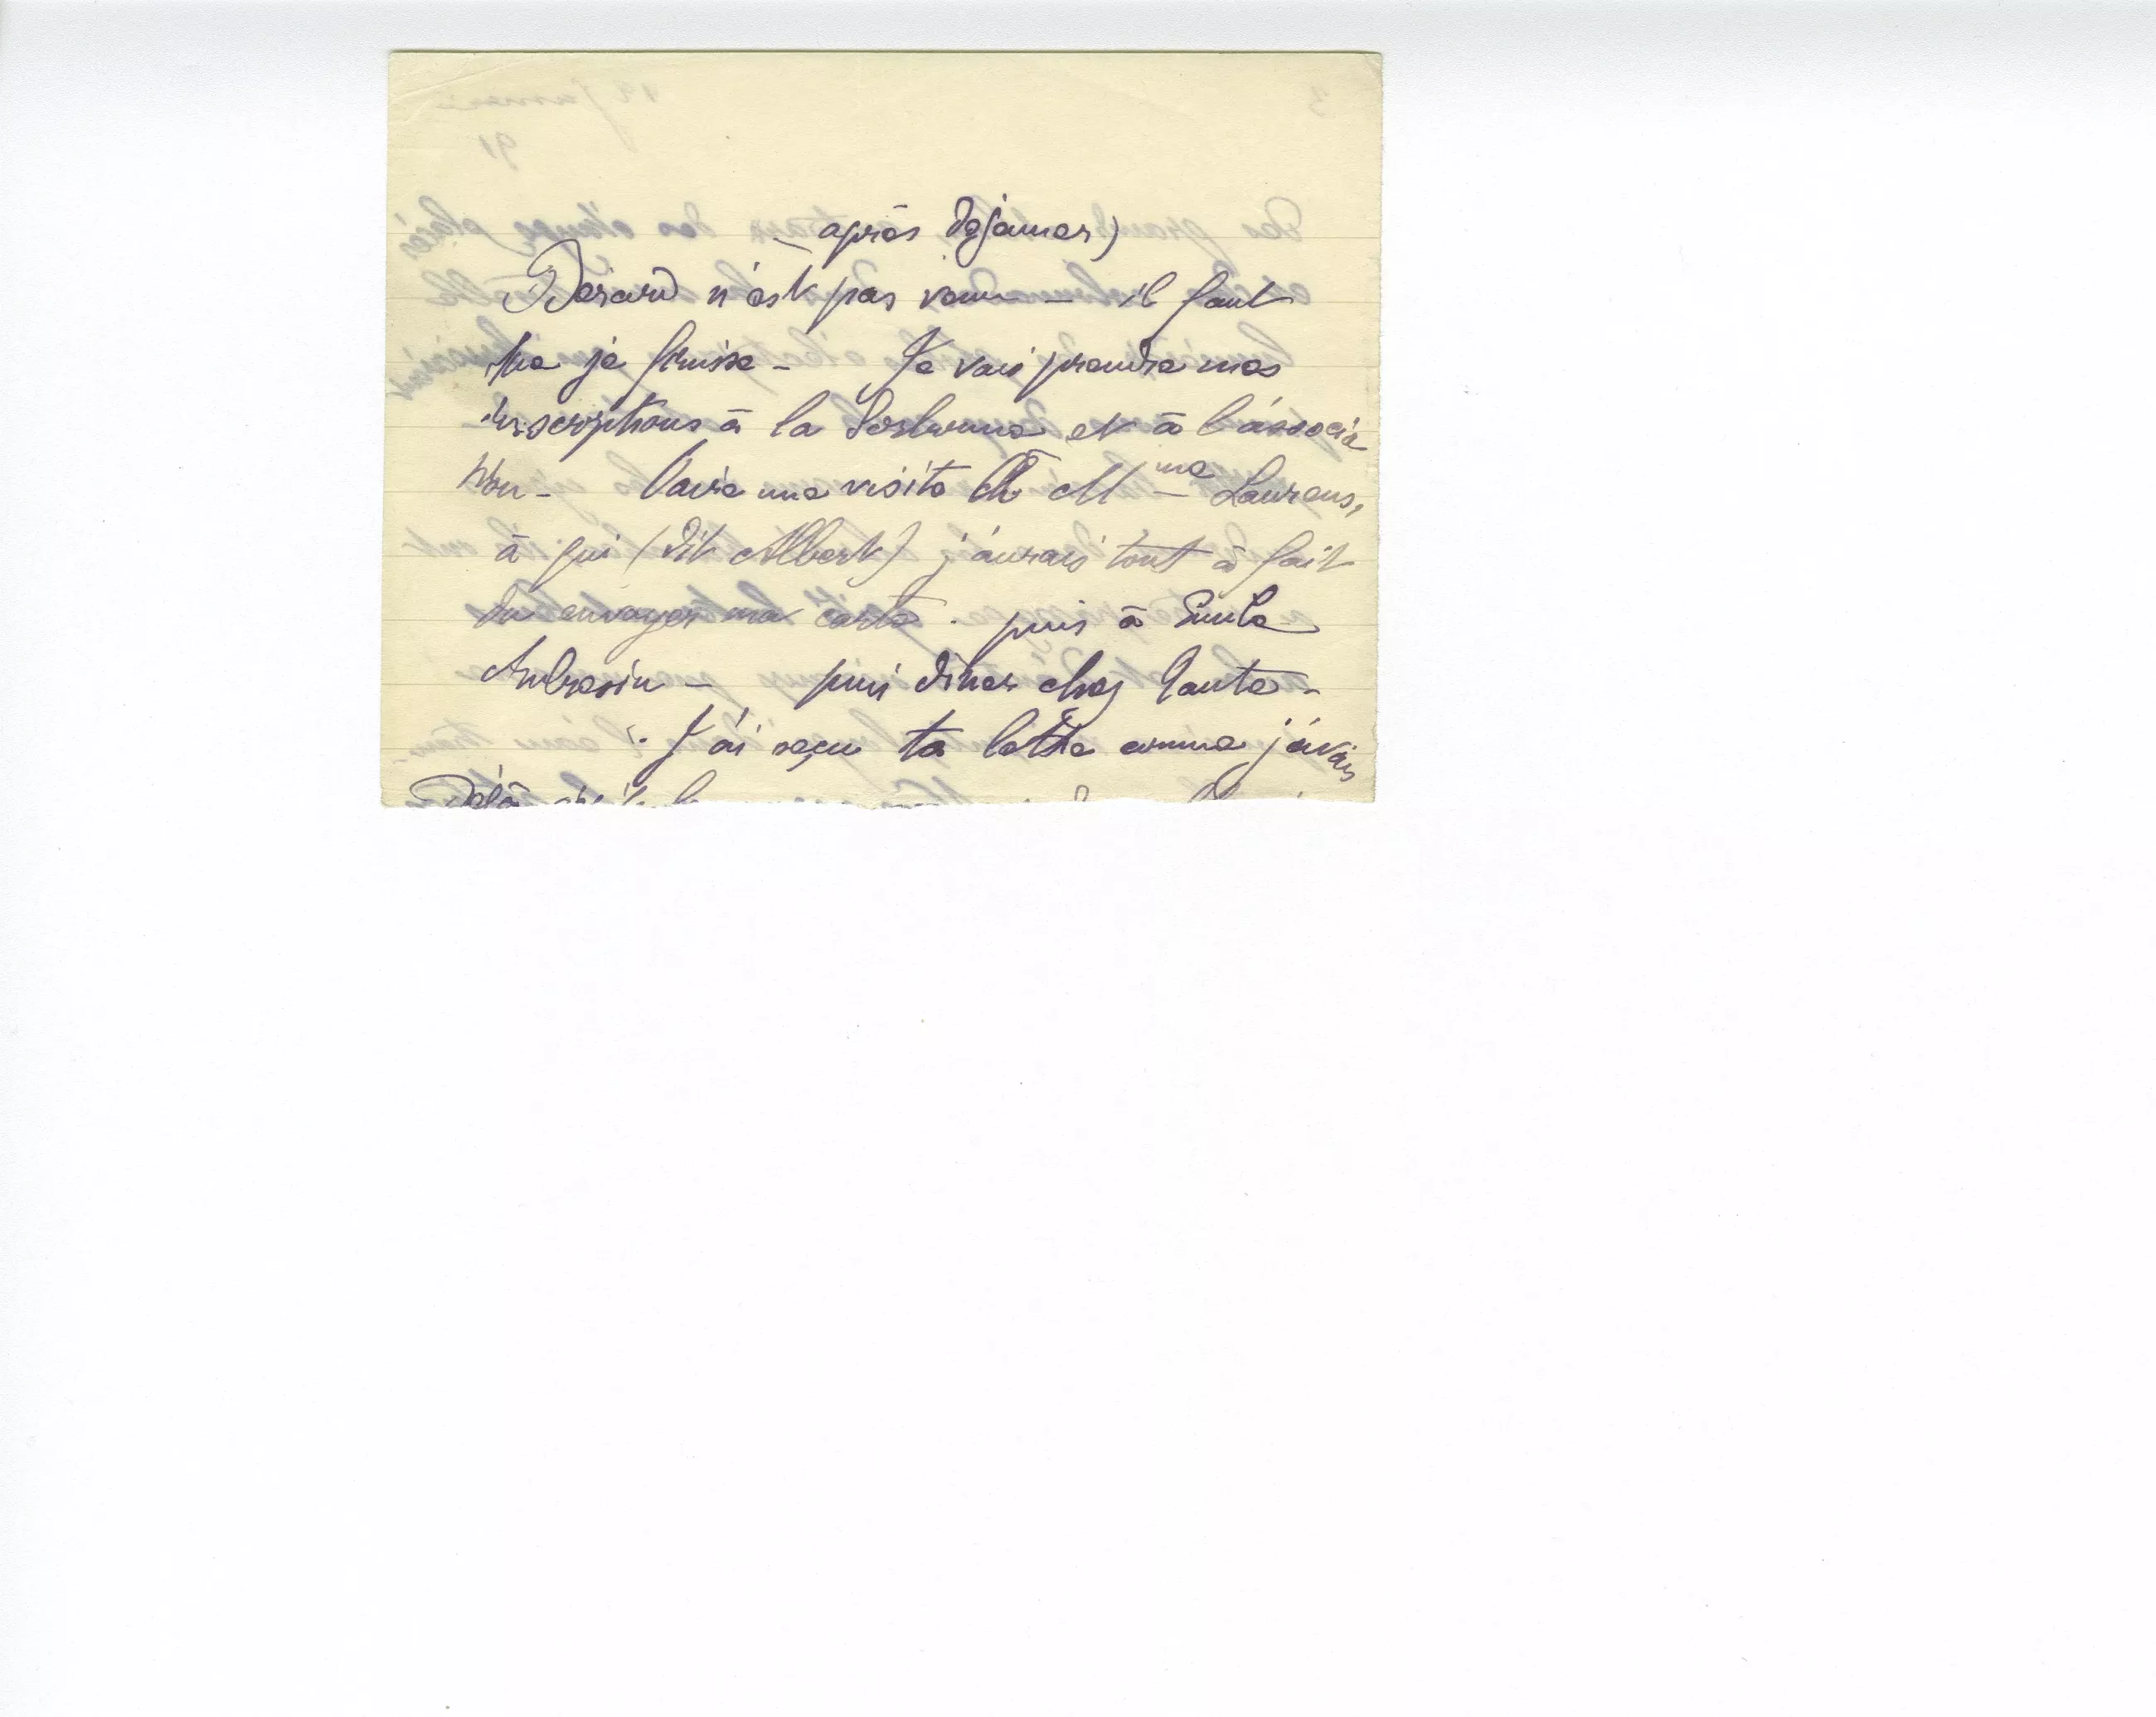 après déjeuner)
Bérard n'est pas venu — il faut
que je finisse — Je vais prendre mes
inscriptions à la Sorbonne et à l'associa
tion — Faire une visite à M^me Laurens,
à qui (dit Albert) j'aurais tout à fait
du envoyer ma carte. puis à Emile
Ambresin — puis dîner chez Tante —
J'ai reçu ta lettre comme j'avais
Déjà